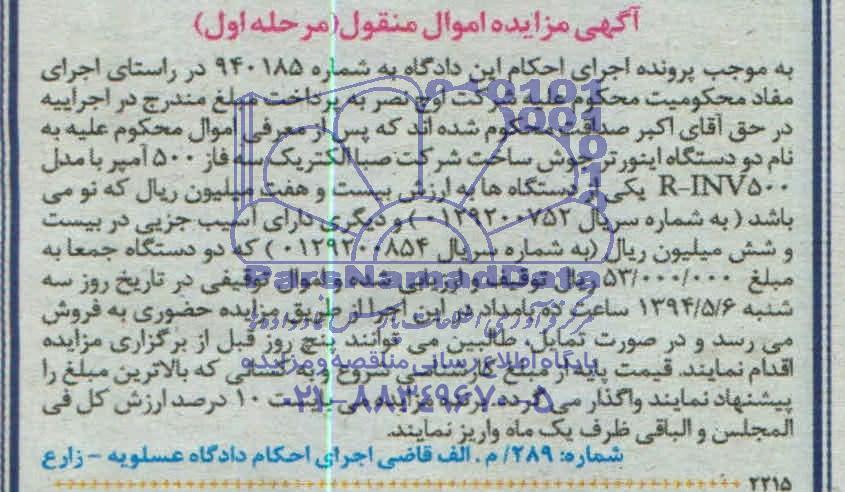 آگهی مزایده اموال منقول(مرحله اول)
به موجب پرونده اجرای احکام این دادگاه به شماره ۹۴۰۱۸۵ در راستای اجرای
مفاد محکومیت محکوم علیه شرکت اوج نصر به پرداخت مبلغ مندرج در اجراییه
در حق آقای اکبر صداقت محکوم شده اند که پس از معرفی اموال محکوم علیه به
نام دو دستگاه اینورتر جوش ساخت شرکت صبا الکتریک سه فاز ۵۰۰ آمپر با مدل
R-INV۵۰۰ یکی از دستگاه ها به ارزش بیست و هفت میلیون ریال که نو می
باشد (به شماره سریال ۰۱۲۹۲۰۰۷۵۲) و دیگری دارای آسیب جزیی در بیست
و شش میلیون ریال (به شماره سریال ۰۱۲۹۲۰۰۸۵۴) که دو دستگاه جمعا به
مبلغ ۵۳/۰۰۰/۰۰۰ ریال توقیف و ارزیابی شده و اموال توقیفی در تاریخ روز سه
شنبه ۱۳۹۴/۵/۶ ساعت ده بامداد در این اجرا از طریق مزایده حضوری به فروش
می رسد و در صورت تمایل، طالبین می توانند پنج روز قبل از برگزاری مزایده
اقدام نمایند. قیمت پایه از مبلغ کارشناسی شروع و به کسانی که بالاترین مبلغ را
پیشنهاد نمایند واگذار می گردد برنده مزایده می بایست ۱۰ درصد ارزش کل فی
المجلس و الباقی ظرف یک ماه واریز نمایند.
شماره: ۲۸۹/ م . الف قاضی اجرای احکام دادگاه عسلویه - زارع
۲۲۱۵
ParsNamadData
پایگاه اطلاع رسانی مناقصه و مزایده
۰۲۱-۸۸۳۴۹۶۷۰-۵